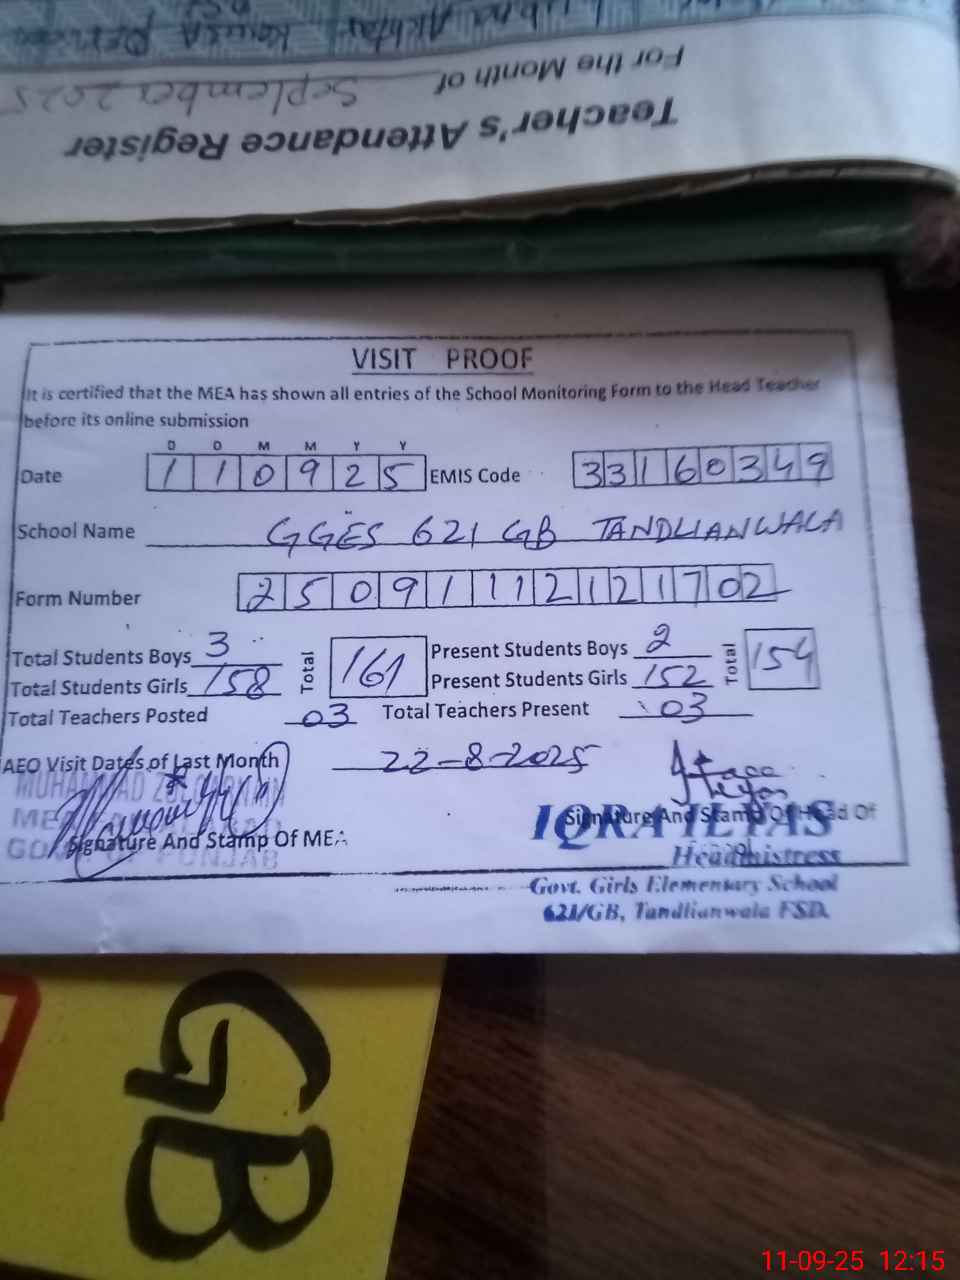 Teacher's Attendance Register
For the Month of September 2025
VISIT PROOF
It is certified that the MEA has shown all entries of the School Monitoring Form to the Head Teacher
before its online submission
D D M M Y Y
Date 1 1 0 9 2 5 EMIS Code 3 3 1 6 0 3 4 9
School Name GGES 621 GB TANDLIANWALA
Form Number 2 5 0 9 1 1 1 2 1 2 1 7 0 2
Total Students Boys 3 Total 161 Present Students Boys 2 Total 154
Total Students Girls 158 Present Students Girls 152
Total Teachers Posted 03 Total Teachers Present 03
AEO Visit Dates of Last Month 22-8-2025
MUHAMMAD
Signature And Stamp Of MEA
PUNJAB
Signature And Stamp Of Head Of
IQRA ILYAS
Headmistress
Govt. Girls Elementary School
621/GB, Tandlianwala FSD.
GB
11-09-25 12:15